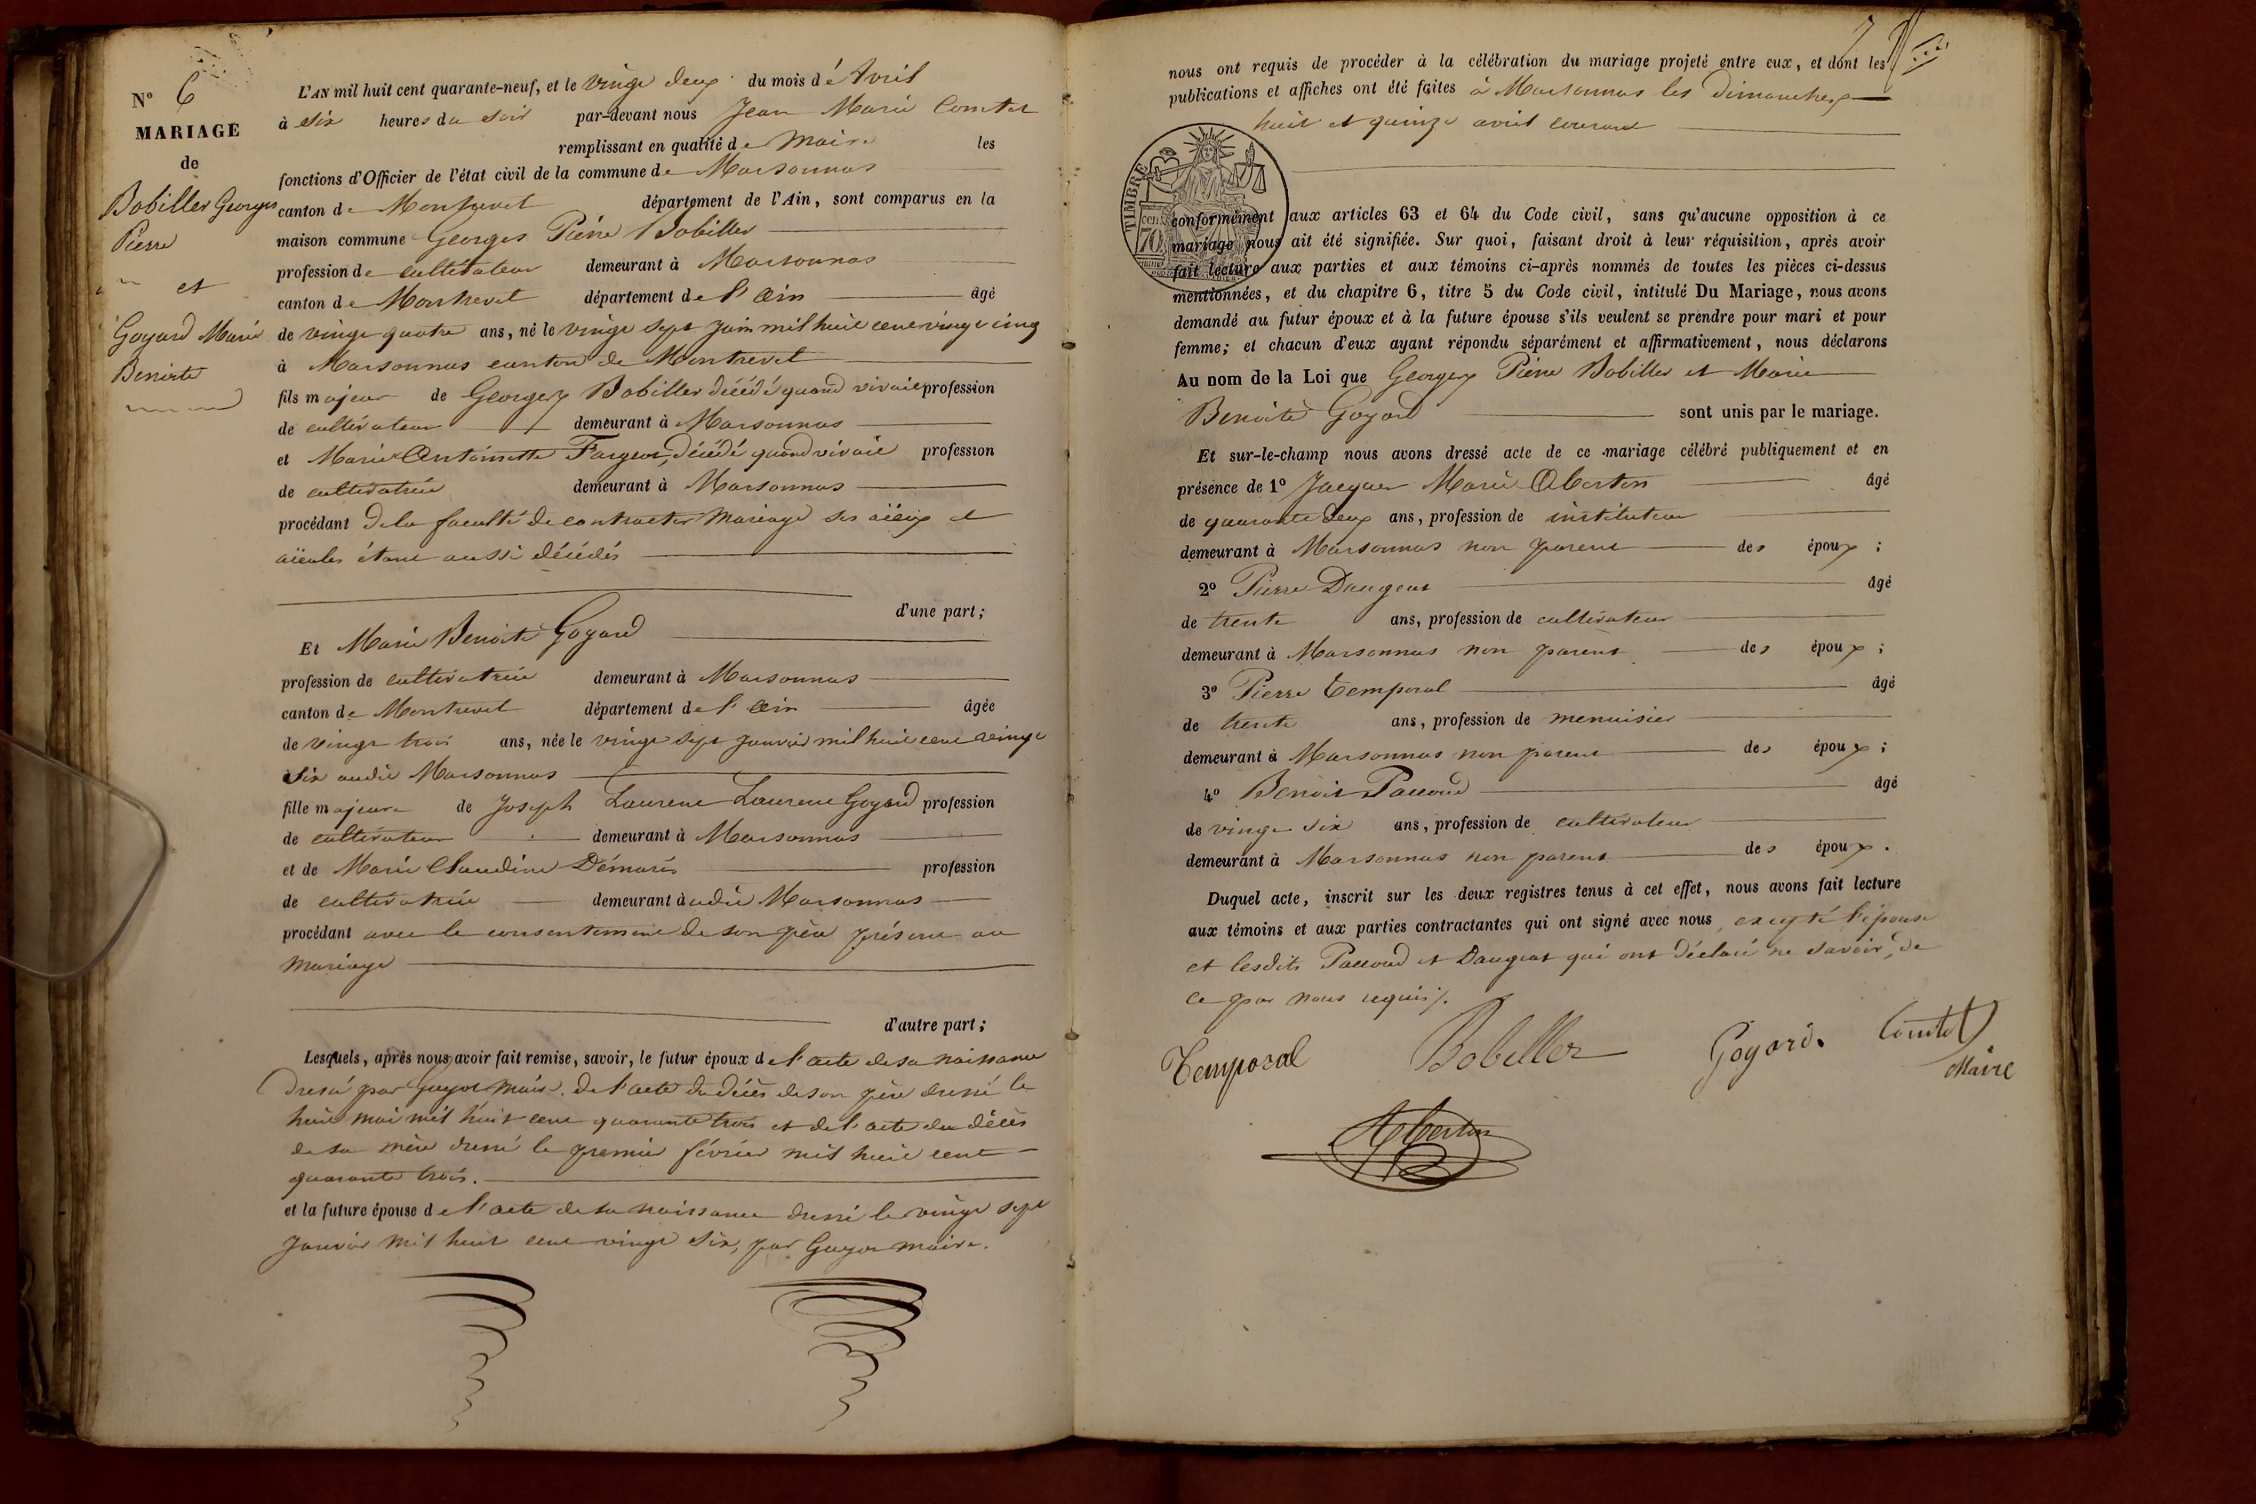 N° 6
MARIAGE
de
Bobiller Georges
Pierre
et
Goyard Marie
Benoite
L'AN mil huit cent quarante-neuf, et le vingt deux du mois d'Avril
à six heures du soir par-devant nous Jean Marie Comtet
remplissant en qualité de Maire les
fonctions d'Officier de l'état civil de la commune de Marsonnas
canton de Montrevel département de l'Ain, sont comparus en la
maison commune Georges Piérre Bobiller
profession de cultivateur demeurant à Marsonnas
canton de Montrevel département de l'Ain âgé
de vingt quatre ans, né le vingt sept Juin mil huit cent vingt cinq
à Marsonnas canton de Montrevel
fils majeur de Georges Bobiller décédé quand vivait profession
de cultivateur demeurant à Marsonnas
et Marie Antoinette Fargeot, décédé quand vivait profession
de cultivatrice demeurant à Marsonnas
procédant de la faculté de contracter Mariage ses aïeux et
aïeules étant aussi décédés
d'une part;
Et Marie Benoite Goyard
profession de cultivatrice demeurant à Marsonnas
canton de Montrevel département de l'Ain âgée
de vingt trois ans, née le vingt sept Janvier mil huit cent vingt
six audit Marsonnas
fille majeure de Joseph Laurent Laurent Goyard profession
de cultivateur demeurant à Marsonnas
et de Marie Claudine Démaris profession
de cultivatrice demeurant à udit Marsonnas
procédant avec le consentement de son père présent au
Mariage
d'autre part;
Lesquels, après nous avoir fait remise, savoir, le futur époux de l'acte de sa naissance
dressé par Guyot Maire. de l'acte du décès de son père dressé le
huit mai mil huit cent quarante trois et de l'acte du décès
de sa mère dressé le premier février mil huit cent
quarante trois.
et la future épouse de l'acte de sa naissance dressé le vingt sept
Janvier mil huit cent vingt six, par Guyot maire.
7
nous ont requis de procéder à la célébration du mariage projeté entre eux, et dont les
publications et affiches ont été faites à Marsonnas les dimanches
huit et quinze avril courant
TIMBRE
70
conformément aux articles 63 et 64 du Code civil, sans qu'aucune opposition à ce
mariage nous ait été signifiée. Sur quoi, faisant droit à leur réquisition, après avoir
fait lecture aux parties et aux témoins ci-après nommés de toutes les pièces ci-dessus
mentionnées, et du chapitre 6, titre 5 du Code civil, intitulé Du Mariage, nous avons
demandé au futur époux et à la future épouse s'ils veulent se prendre pour mari et pour
femme; et chacun d'eux ayant répondu séparément et affirmativement, nous déclarons
Au nom de la Loi que Georges Piérre Bobiller et Marie
Benoite Goyard sont unis par le mariage.
Et sur-le-champ nous avons dressé acte de ce mariage célébré publiquement et en
présence de 1° Jacques Marie Aberton âgé
de quarante deux ans, profession de instituteur
demeurant à Marsonnas non parent des époux;
2° Pierre Daugeat âgé
de trente ans, profession de cultivateur
demeurant à Marsonnas non parent des époux;
3° Pierre Temporal âgé
de trente ans, profession de menuisier
demeurant à Marsonnas non parent des époux;
4° Benoit Paccoud âgé
de vingt six ans, profession de cultivateur
demeurant à Marsonnas non parent des époux.
Duquel acte, inscrit sur les deux registres tenus à cet effet, nous avons fait lecture
aux témoins et aux parties contractantes qui ont signé avec nous, excepté l'épouse
et lesdits Paccoud et Daugeat qui ont déclaré ne savoir, de
ce par nous requis.
Temporal Bobiller Goyard. Comtet
Maire
Aberton